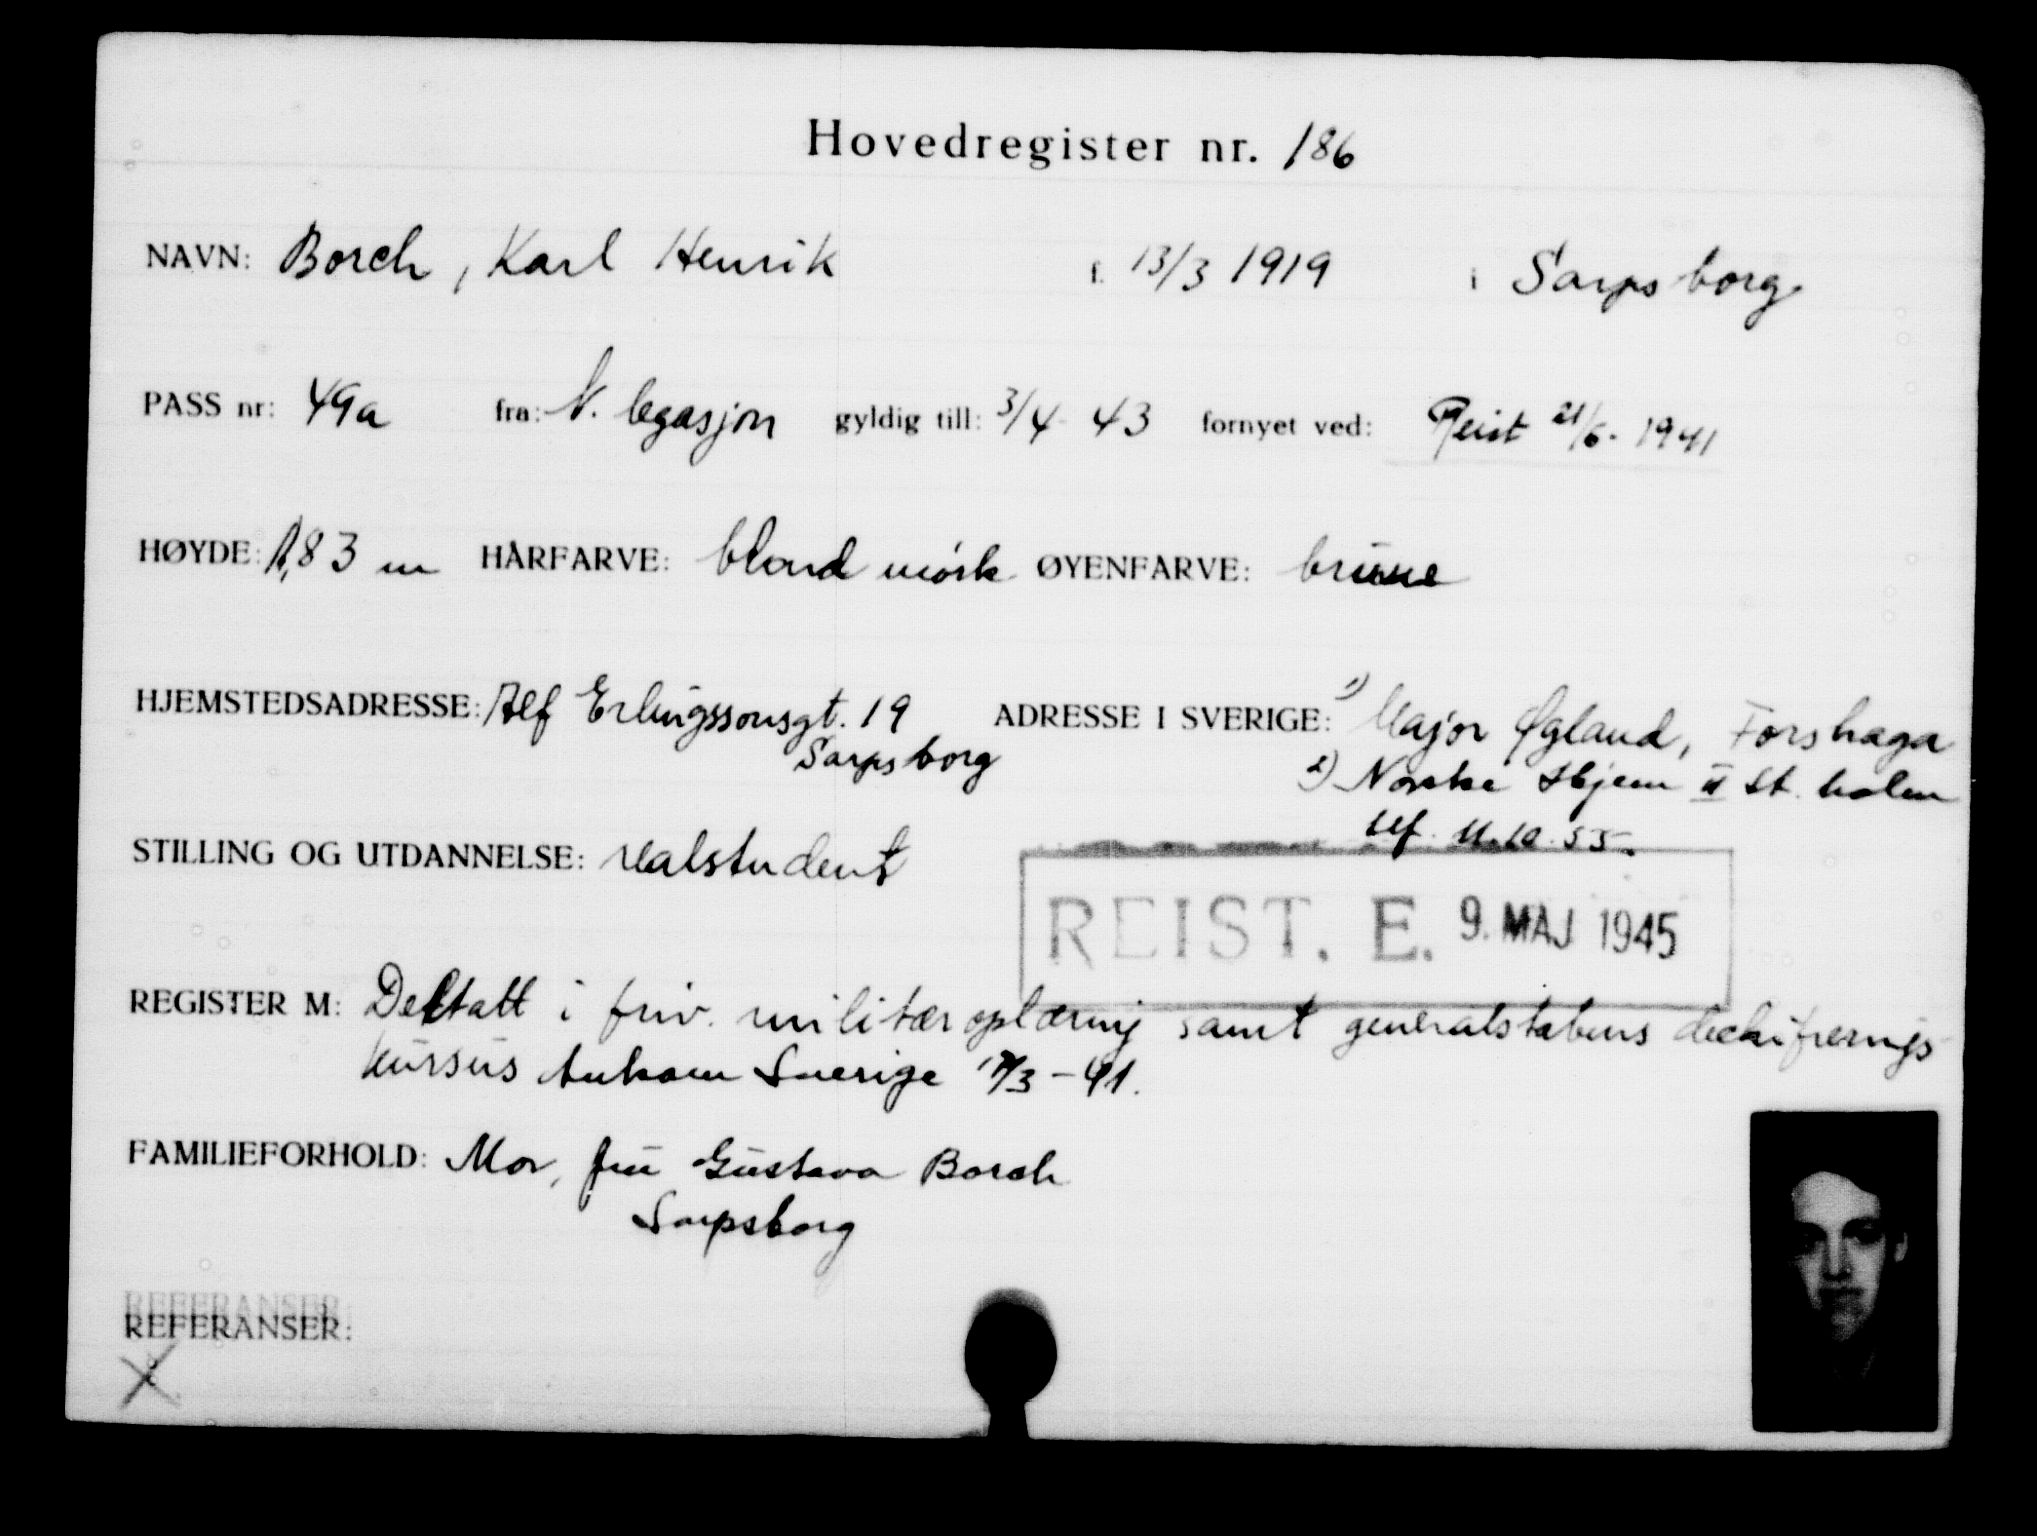 Hovedregister nr. 186
NAVN: Borch, Karl Henrik f. 13/3 1919 i Sarpsborg
PASS nr: 49a fra: N. legasjon gyldig till: 3/4 43 fornyet ved: Reist 21/6. 1941
HØYDE: 1,83 m HÅRFARVE: blond mørk ØYENFARVE: brune
HJEMSTEDSADRESSE: Alf Erlingssonsgt. 19 ADRESSE I SVERIGE: 1) Major Øgland, Forshaga
Sarpsborg 2) Norske Hjem II St. holm
tlf. 11.10.55.
STILLING OG UTDANNELSE: realstudent
REIST. E. 9. MAJ 1945
REGISTER M: Deltatt i friv. militær oplæring samt generalstabens dechifrerings
kursus Ankom Sverige /3-41.
FAMILIEFORHOLD: Mor, fru Gustava Borch
Sarpsborg
REFERANSER:
REFERANSER:
X